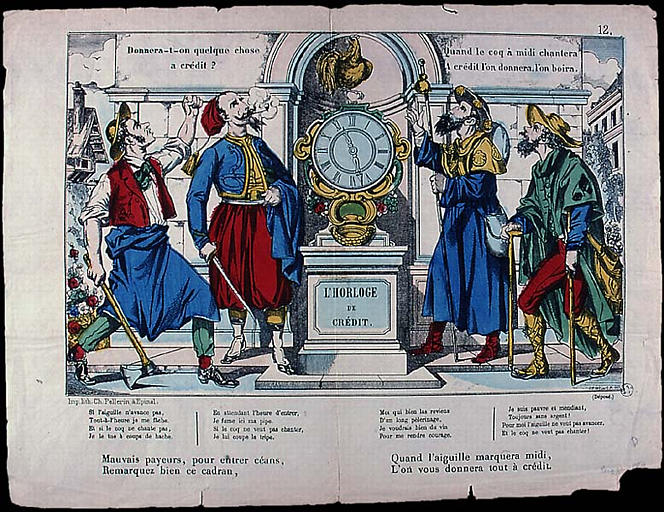 12.
Donnera-t-on quelque chose
a crédit ?
Quand le coq à midi chantera
A crédit l'on donnera, l'on boira.
L'HORLOGE
DE
CRÉDIT.
Imp. lith. Ch. Pellerin, à Epinal.
(Déposé.)
Si l'aiguille n'avance pas,
Tout-à-l'heure je me fâche.
Et si le coq ne chante pas,
Je le tue à coups de hache.
En attendant l'heure d'entrer,
Je fume ici ma pipe.
Si le coq ne veut pas chanter,
Je lui coupe la tripe.
Moi qui bien las reviens
D'un long pèlerinage,
Je voudrais bien du vin
Pour me rendre courage.
Je suis pauvre et mendiant,
Toujours sans argent !
Pour moi l'aiguille ne veut pas avancer,
Et le coq ne veut pas chanter !
Mauvais payeurs, pour entrer céans,
Remarquez bien ce cadran,
Quand l'aiguille marquera midi,
L'on vous donnera tout à crédit.